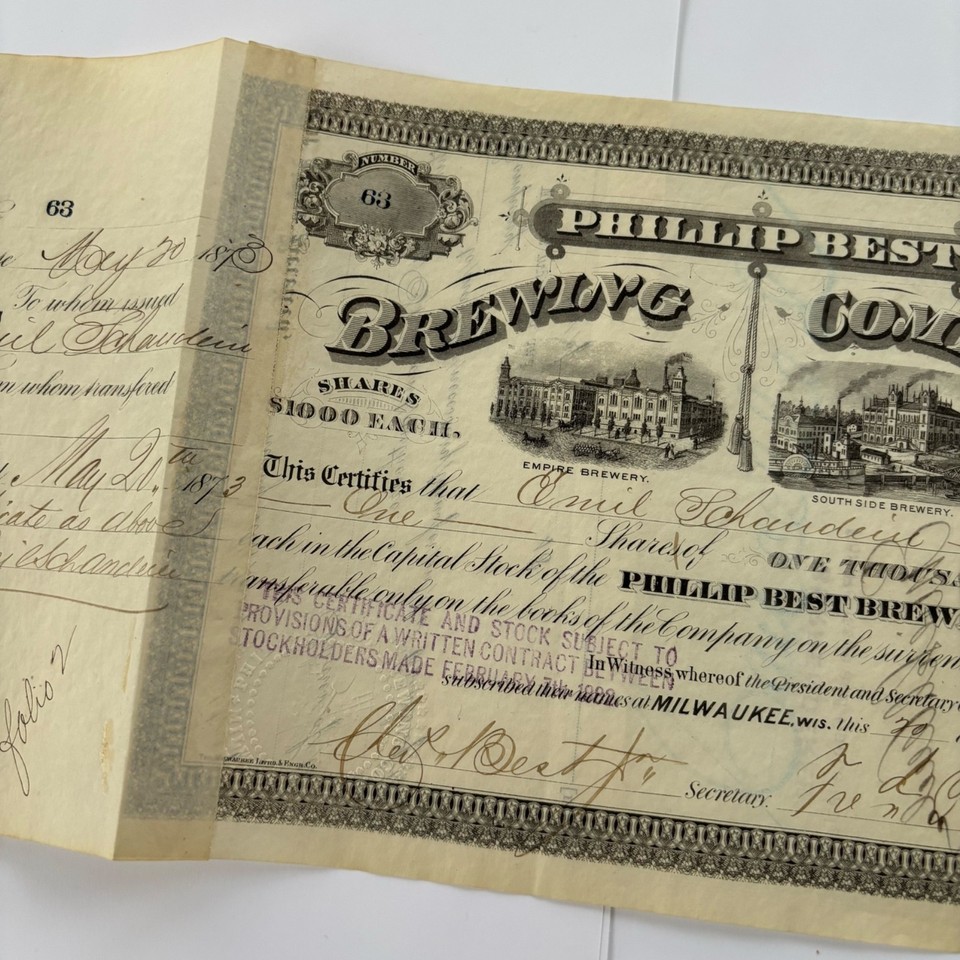 63
May 20 1873
To whom issued
Schandein
whom transferred
May 20th 1873
as above
Schandein
folio 2
NUMBER
63
PHILLIP BEST
BREWING
SHARES
$1000 EACH.
EMPIRE BREWERY.
SOUTH SIDE BREWERY.
This Certifies that Emil Schandein
One Shares of ONE
each in the Capital Stock of the PHILLIP BEST
transferable only on the books of the Company on the
THIS CERTIFICATE AND STOCK SUBJECT TO
PROVISIONS OF A WRITTEN CONTRACT BETWEEN
STOCKHOLDERS MADE FEBRUARY 7th
In Witness whereof the President and Secretary
subscribed their names at MILWAUKEE, WIS. this 20
Chas. Best Jr.
Secretary.